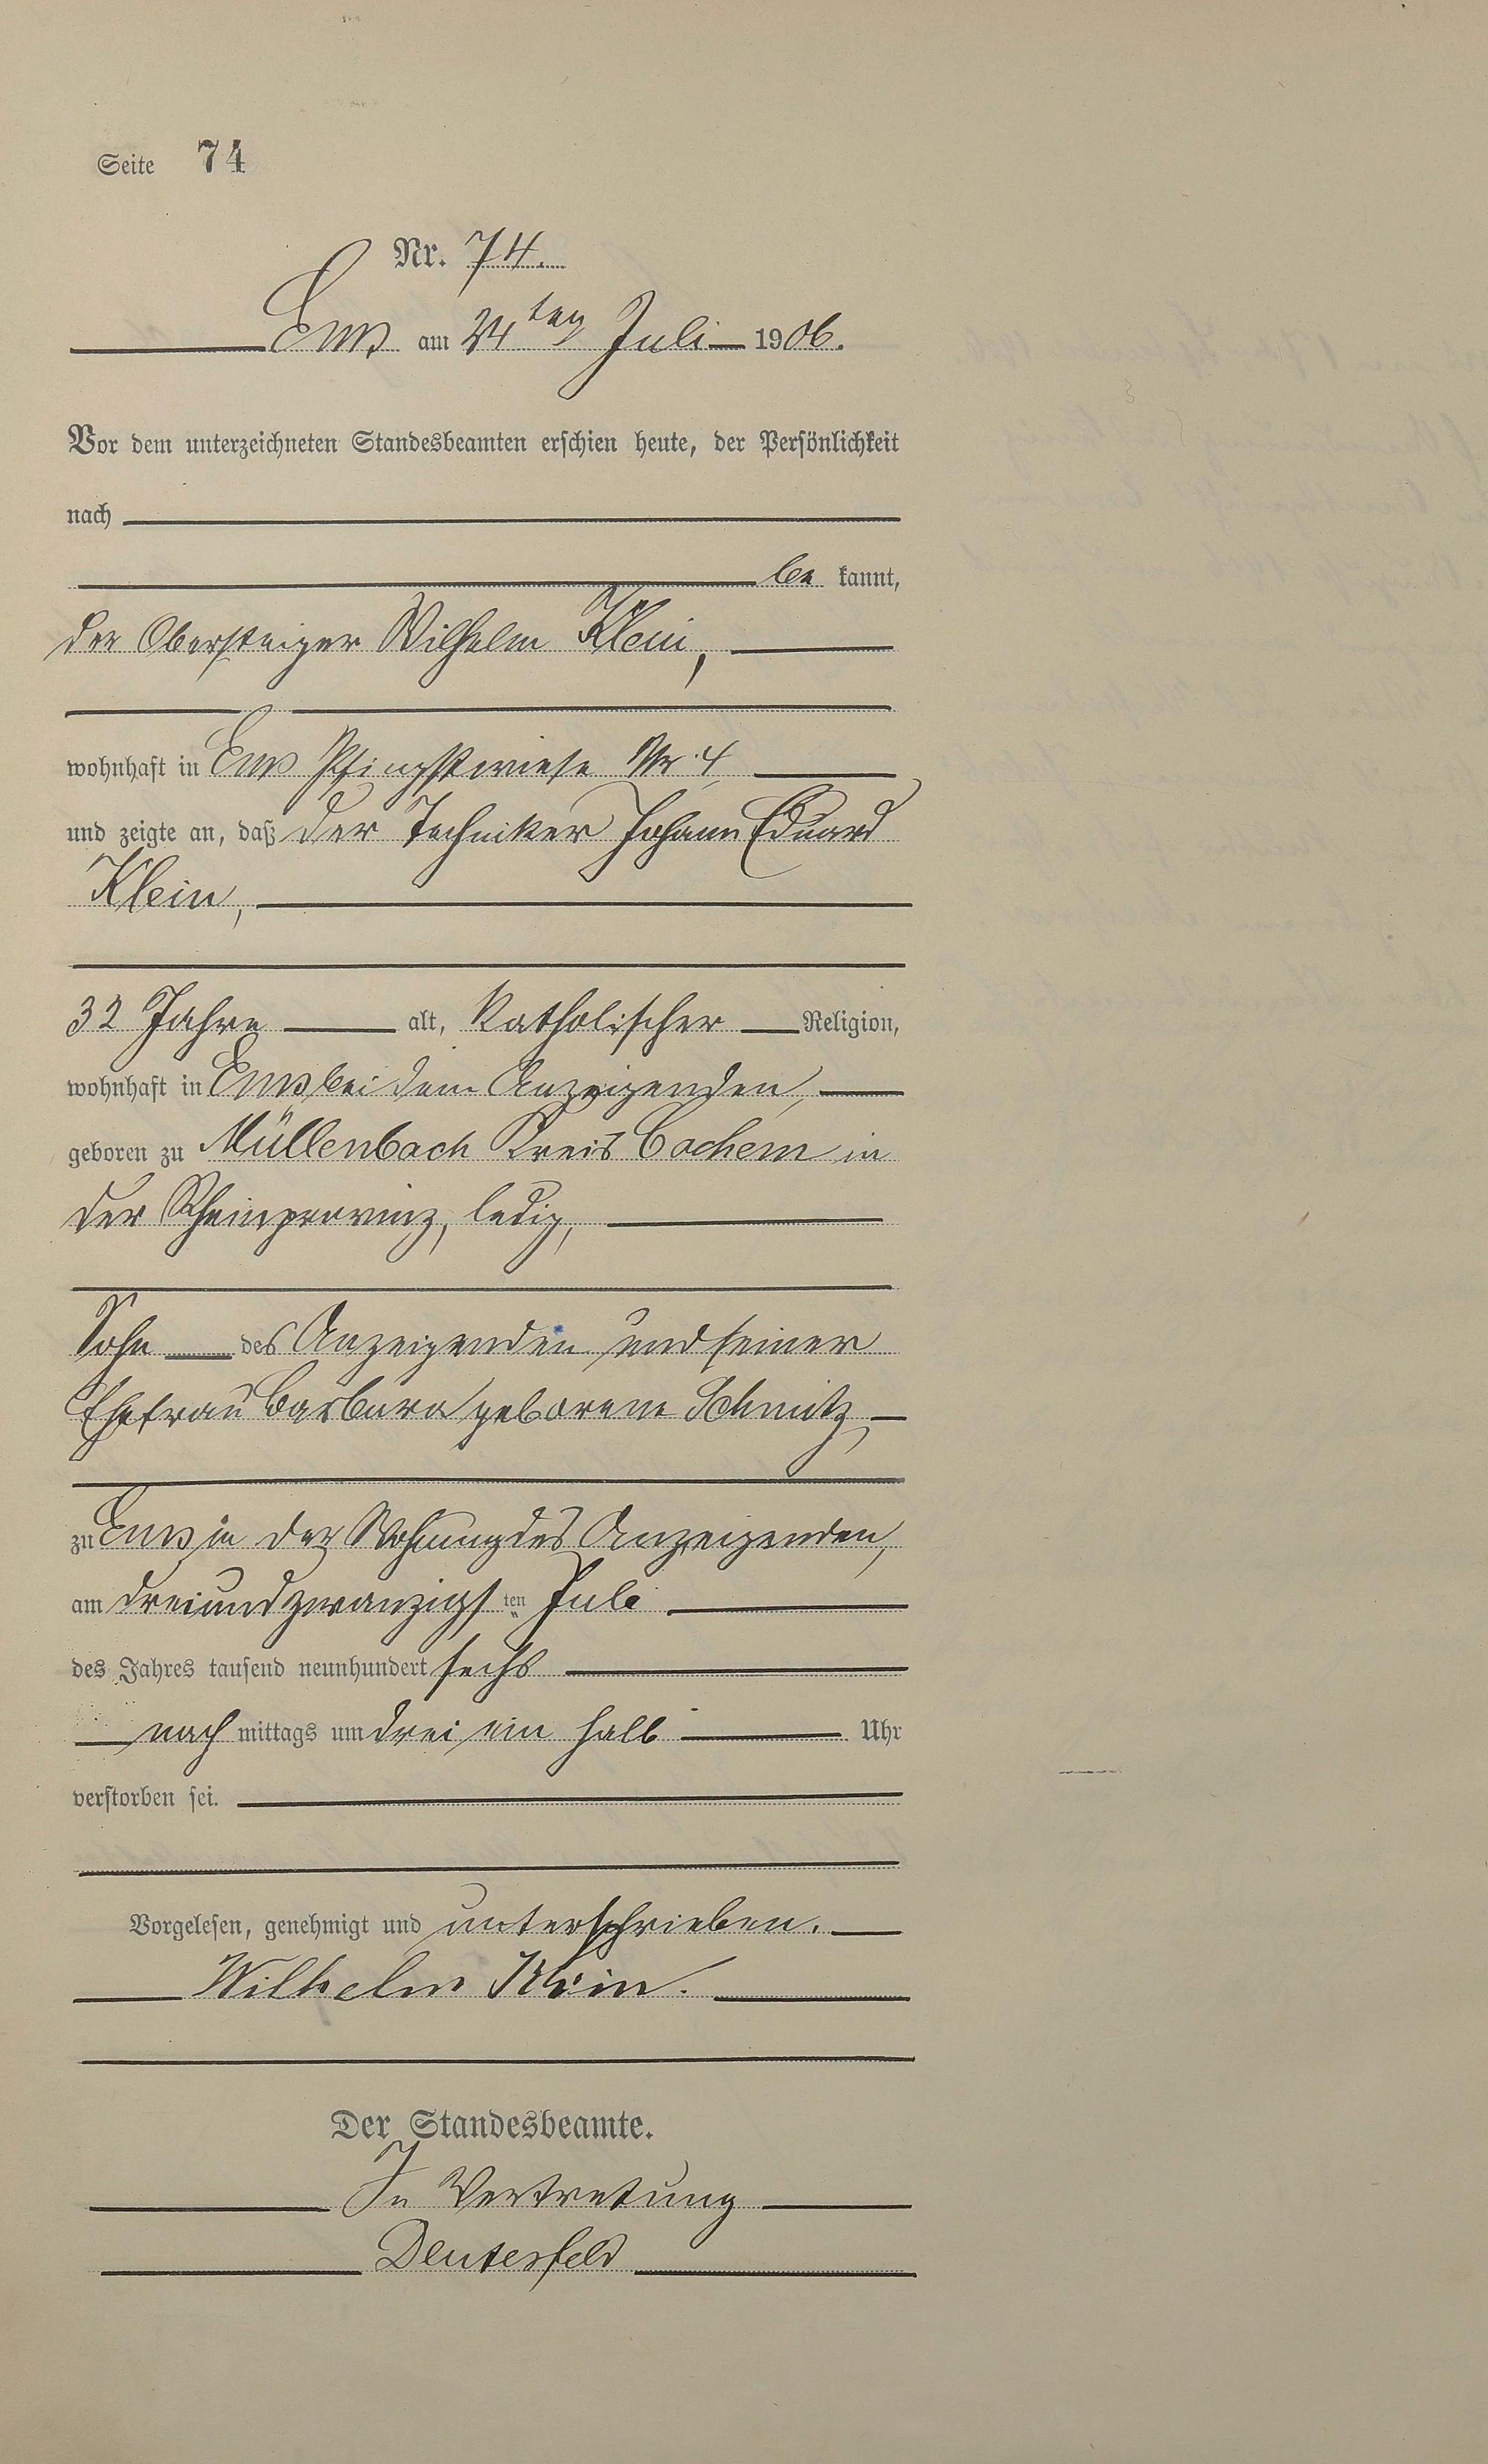 Seite 74
Nr. 74.
Ems am 24ten Juli 1906.
Vor dem unterzeichneten Standesbeamten erschien heute, der Persönlichkeit
nach
be kannt,
der Obersteiger Wilhelm Klein,
wohnhaft in Ems Pfingstwiese Nr. 4
und zeigte an, daß der Techniker Johann Eduard
Klein,
32 Jahre alt, katholischer Religion,
wohnhaft in Ems bei dem Anzeigenden,
geboren zu Müllenbach Kreis Cochem in
der Rheinprovinz, ledig,
Sohn des Anzeigenden und seiner
Ehefrau Barbara geborene Schmitz,
zu Ems in der Wohnung des Anzeigenden,
am dreiundzwanzigsten Juli
des Jahres tausend neunhundert sechs
nach mittags um drei ein halb Uhr
verstorben sei.
Vorgelesen, genehmigt und unterschrieben.
Wilhelm Klein.
Der Standesbeamte.
In Vertretung